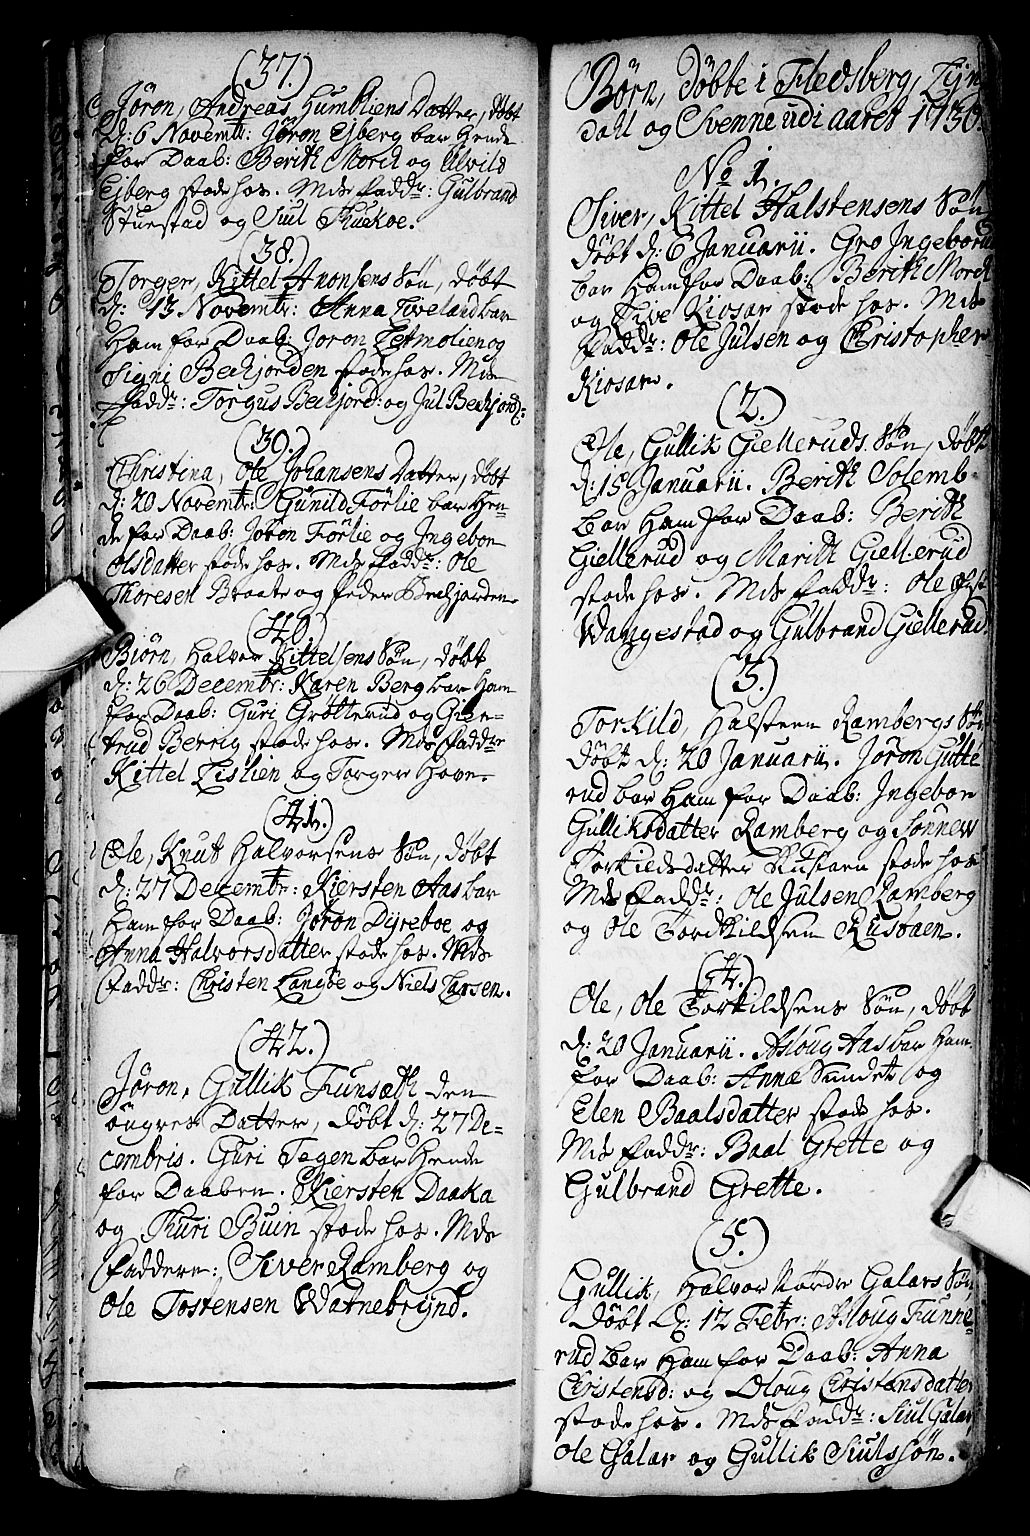 (37.)
Jöron, Andreas Humbliens Datter, döbt
d: 6 Novembr: Jöron Ejberg bar hende
for Daab: Berith Mord og Alvild
Ejberg stode hos. Mds fadd: Gulbrand
Stuestad og Siul Fluekoe.
(38.)
Torger, Kittel Anonsens Sön, döbt
d: 13 Novembr: Anna Foveland bar
ham for Daab: Joron Tetmolien og
Signi Beckjorden stode hos. Mds
fadd: Torgus Beckjord: og Jul Beckjord:
(39.)
Christina, Ole Johansens Datter, döbt
d: 20 Novembr: Gunild Förlie bar hen-
de for Daab: Jöron Förlie og Ingebor
Olsdatter stode hos. Mds fadd: Ole
Thoresen Braate og Peder Beckjorden
(40)
Biörn, Halvor Kittelsens Sön, döbt
d: 26 Decembr: Karen Berg bar ham
for Daab: Guri Grötterud og Gier-
trud Berrig stode hos. Mds fadd
Kittel Lislien og Torger Hove.
(41.)
Ole, Knut Halvorsens Sön, döbt
d: 27 Decembr: Kiersten Aas bar
ham for Daab: Jöron Dyreboe og
Anna Halvorsdatter stode hos. Mds
fadd: Christen Langöe og Niels Larsen.
(42.)
Jöron, Gullik Funsæth den
öngres Datter, döbt d: 27 De-
cembris. Guri Tegen bar hende
for Daaben. Kiersten Daaka
og Turi Buin stode hos. Mds
faddere: Siver Ramberg og
Ole Tostensen Watnebrynd.
Börn, döbte i Fledsberg, Lyn
dall og Svenne udi aaret 1730.
No 1.
Siver, Kittel Halstensens Sön
döbt d: 6 Januarii. Gro Ingeborud
bar ham for Daab: Berith Mord
og Sive Kiosar stode hos. Mds
fadd: Ole Julsen og Christopher
Kiosar.
(2.)
Ole, Gullik Gielleruds Sön, döbt
d: 15 Januarii. Berith Solemb-
bar ham for Daab: Berith
Giellerud og Marith Giellerud
stode hos. Mds fadd: Ole
Wangestad og Gulbrand Giellerud.
(3.)
Torkild, Halsteen Rambergs Sön
döbt d: 20 Januarii. Jöron Gutte
rud bar ham for Daab: Ingebor
Gulliksdatter Ramberg og Sönnew
Torkildsdatter Rustaen stode hos
Mds fadd: Ole Julsen Ramberg
og Ole Tordkildsen Rusöaen.
(4.)
Ole, Ole Torkildsens Sön, döbt
d: 20 Januarii. Asloug Aas bar ham
for Daab: Anne Sundet og
Elen Baalsdatter stode hos.
Mds fadd: Baal Grette og
Gulbrand Grette.
(5.)
Gullik, Halvor Nördre Galars Sön,
döbt d: 12 Febr: Asloug Funne-
rud bar ham for Daab: Anna
Cristensd: og Oloug Cristensdatter
stode hos. Mds fadd: Siul Galar,
Ole Galar og Gullik Siulssön.